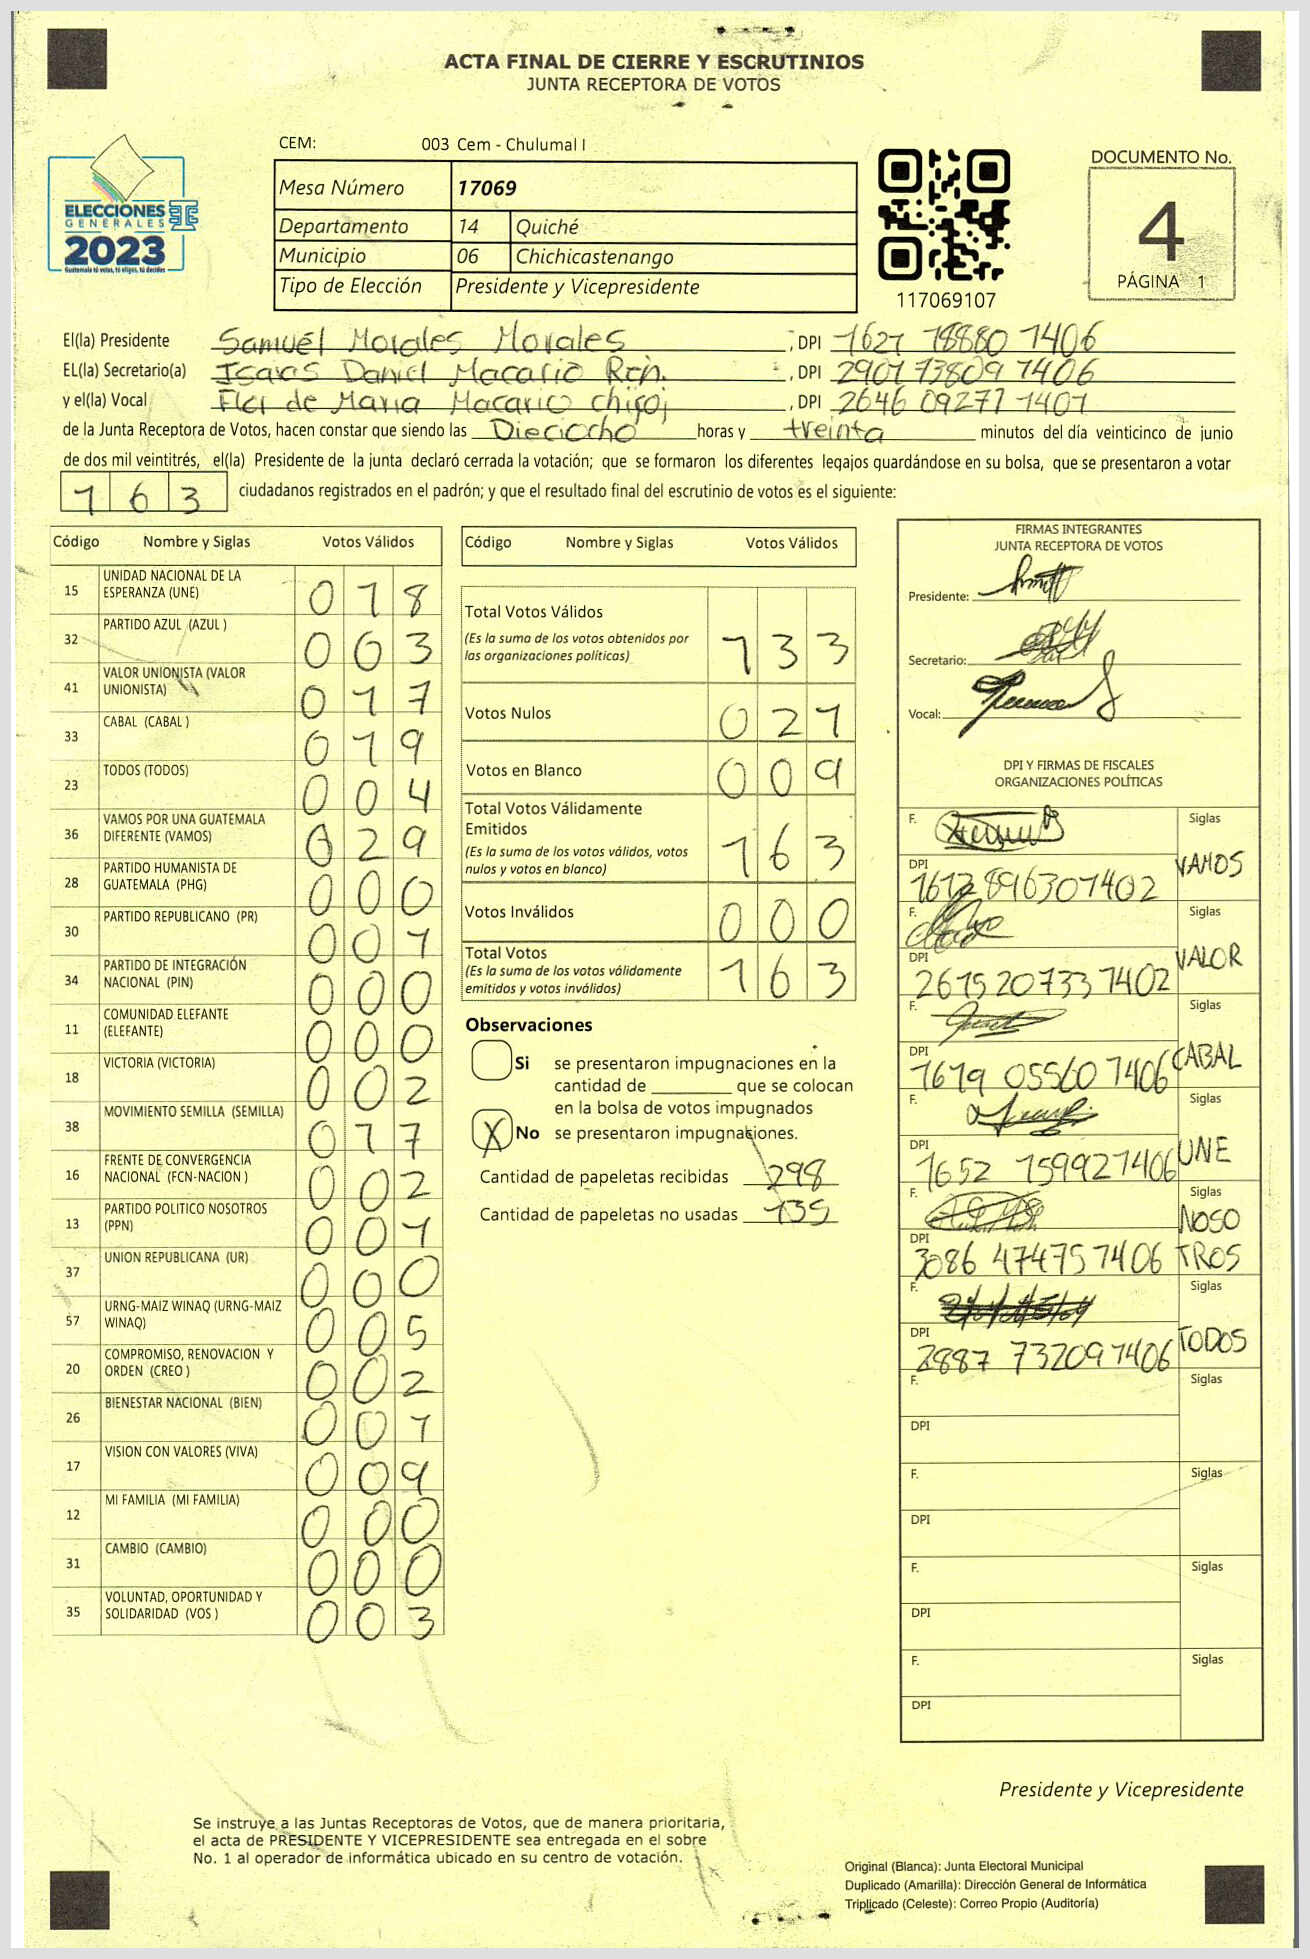 ACTA FINAL DE CIERRE Y ESCRUTINIOS
JUNTA RECEPTORA DE VOTOS
CEM: 003 Cem - Chulumal I
Mesa Número 17069
Departamento 14 Quiché
Municipio 06 Chichicastenango
Tipo de Elección Presidente y Vicepresidente
ELECCIONES
GENERALES
2023
Guatemala tú votas, tú eliges, tú decides
117069107
DOCUMENTO No.
4
PÁGINA 1
El(la) Presidente Samuél Morales Morales, DPI 1621 18880 1406
EL(la) Secretario(a) Isaias Daniel Macario, DPI 2901 73809 1406
y el(la) Vocal Flor de Maria Macario, DPI 2646 09277 1401
de la Junta Receptora de Votos, hacen constar que siendo las Dieciocho horas y treinta minutos del día veinticinco de junio
de dos mil veintitrés, el(la) Presidente de la junta declaró cerrada la votación; que se formaron los diferentes legajos guardándose en su bolsa, que se presentaron a votar
163 ciudadanos registrados en el padrón; y que el resultado final del escrutinio de votos es el siguiente:
Código Nombre y Siglas Votos Válidos
15 UNIDAD NACIONAL DE LA ESPERANZA (UNE) 018
32 PARTIDO AZUL (AZUL ) 003
41 VALOR UNIONISTA (VALOR UNIONISTA) 017
33 CABAL (CABAL ) 019
23 TODOS (TODOS) 004
36 VAMOS POR UNA GUATEMALA DIFERENTE (VAMOS) 029
28 PARTIDO HUMANISTA DE GUATEMALA (PHG) 000
30 PARTIDO REPUBLICANO (PR) 001
34 PARTIDO DE INTEGRACIÓN NACIONAL (PIN) 000
11 COMUNIDAD ELEFANTE (ELEFANTE) 000
18 VICTORIA (VICTORIA) 002
38 MOVIMIENTO SEMILLA (SEMILLA) 017
16 FRENTE DE CONVERGENCIA NACIONAL (FCN-NACION ) 002
13 PARTIDO POLITICO NOSOTROS (PPN) 001
37 UNION REPUBLICANA (UR) 000
57 URNG-MAIZ WINAQ (URNG-MAIZ WINAQ) 005
20 COMPROMISO, RENOVACION Y ORDEN (CREO ) 002
26 BIENESTAR NACIONAL (BIEN) 001
17 VISION CON VALORES (VIVA) 009
12 MI FAMILIA (MI FAMILIA) 000
31 CAMBIO (CAMBIO) 000
35 VOLUNTAD, OPORTUNIDAD Y SOLIDARIDAD (VOS ) 003
Código Nombre y Siglas Votos Válidos
Total Votos Válidos 133
(Es la suma de los votos obtenidos por
las organizaciones políticas)
Votos Nulos 021
Votos en Blanco 009
Total Votos Válidamente
Emitidos 163
(Es la suma de los votos válidos, votos
nulos y votos en blanco)
Votos Inválidos 000
Total Votos 163
(Es la suma de los votos válidamente
emitidos y votos inválidos)
Observaciones
Si se presentaron impugnaciones en la
cantidad de ________ que se colocan
en la bolsa de votos impugnados
X No se presentaron impugnaciones.
Cantidad de papeletas recibidas 298
Cantidad de papeletas no usadas 135
FIRMAS INTEGRANTES
JUNTA RECEPTORA DE VOTOS
Presidente:
Secretario:
Vocal:
DPI Y FIRMAS DE FISCALES
ORGANIZACIONES POLÍTICAS
F. Siglas
DPI VAMOS
F. Siglas
DPI 2615 20733 1402 VALOR
F. Siglas
DPI 1619 05560 1406 CABAL
F. Siglas
DPI 1652 15992 1406 UNE
F. Siglas
DPI 3086 47475 1406 NOSOTROS
F. Siglas
DPI 2887 73209 1406 TODOS
F. Siglas
DPI
F. Siglas
DPI
F. Siglas
DPI
F. Siglas
DPI
Presidente y Vicepresidente
Se instruye a las Juntas Receptoras de Votos, que de manera prioritaria,
el acta de PRESIDENTE Y VICEPRESIDENTE sea entregada en el sobre
No. 1 al operador de informática ubicado en su centro de votación.
Original (Blanca): Junta Electoral Municipal
Duplicado (Amarilla): Dirección General de Informática
Triplicado (Celeste): Correo Propio (Auditoría)